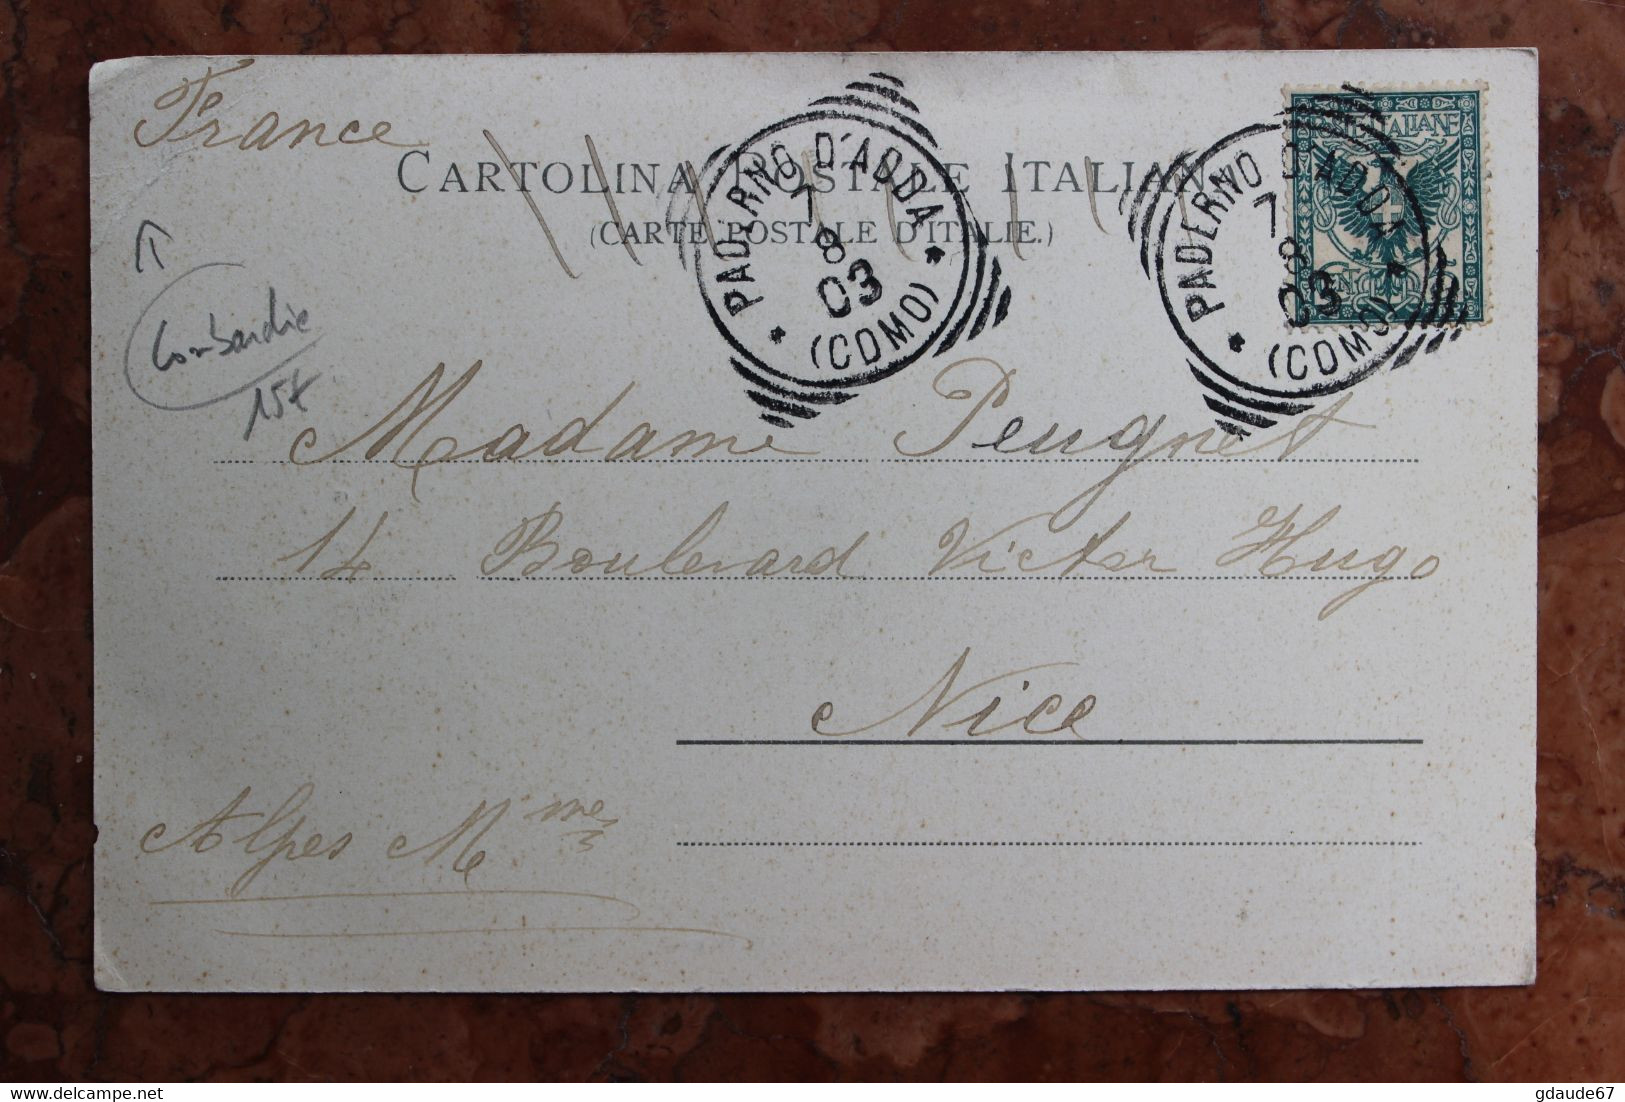 France
CARTOLINA POSTALE ITALIANA
(CARTE POSTALE D'ITALIE.)
PADERNO D'ADDA
7
8
03
(COMO)
POSTE ITALIANE
PADERNO D'ADDA
7
8
03
(COMO)
Lombardie
15€
Madame Peugnet
14 Boulevard Victor Hugo
Nice
Alpes Mmes
gdaude67